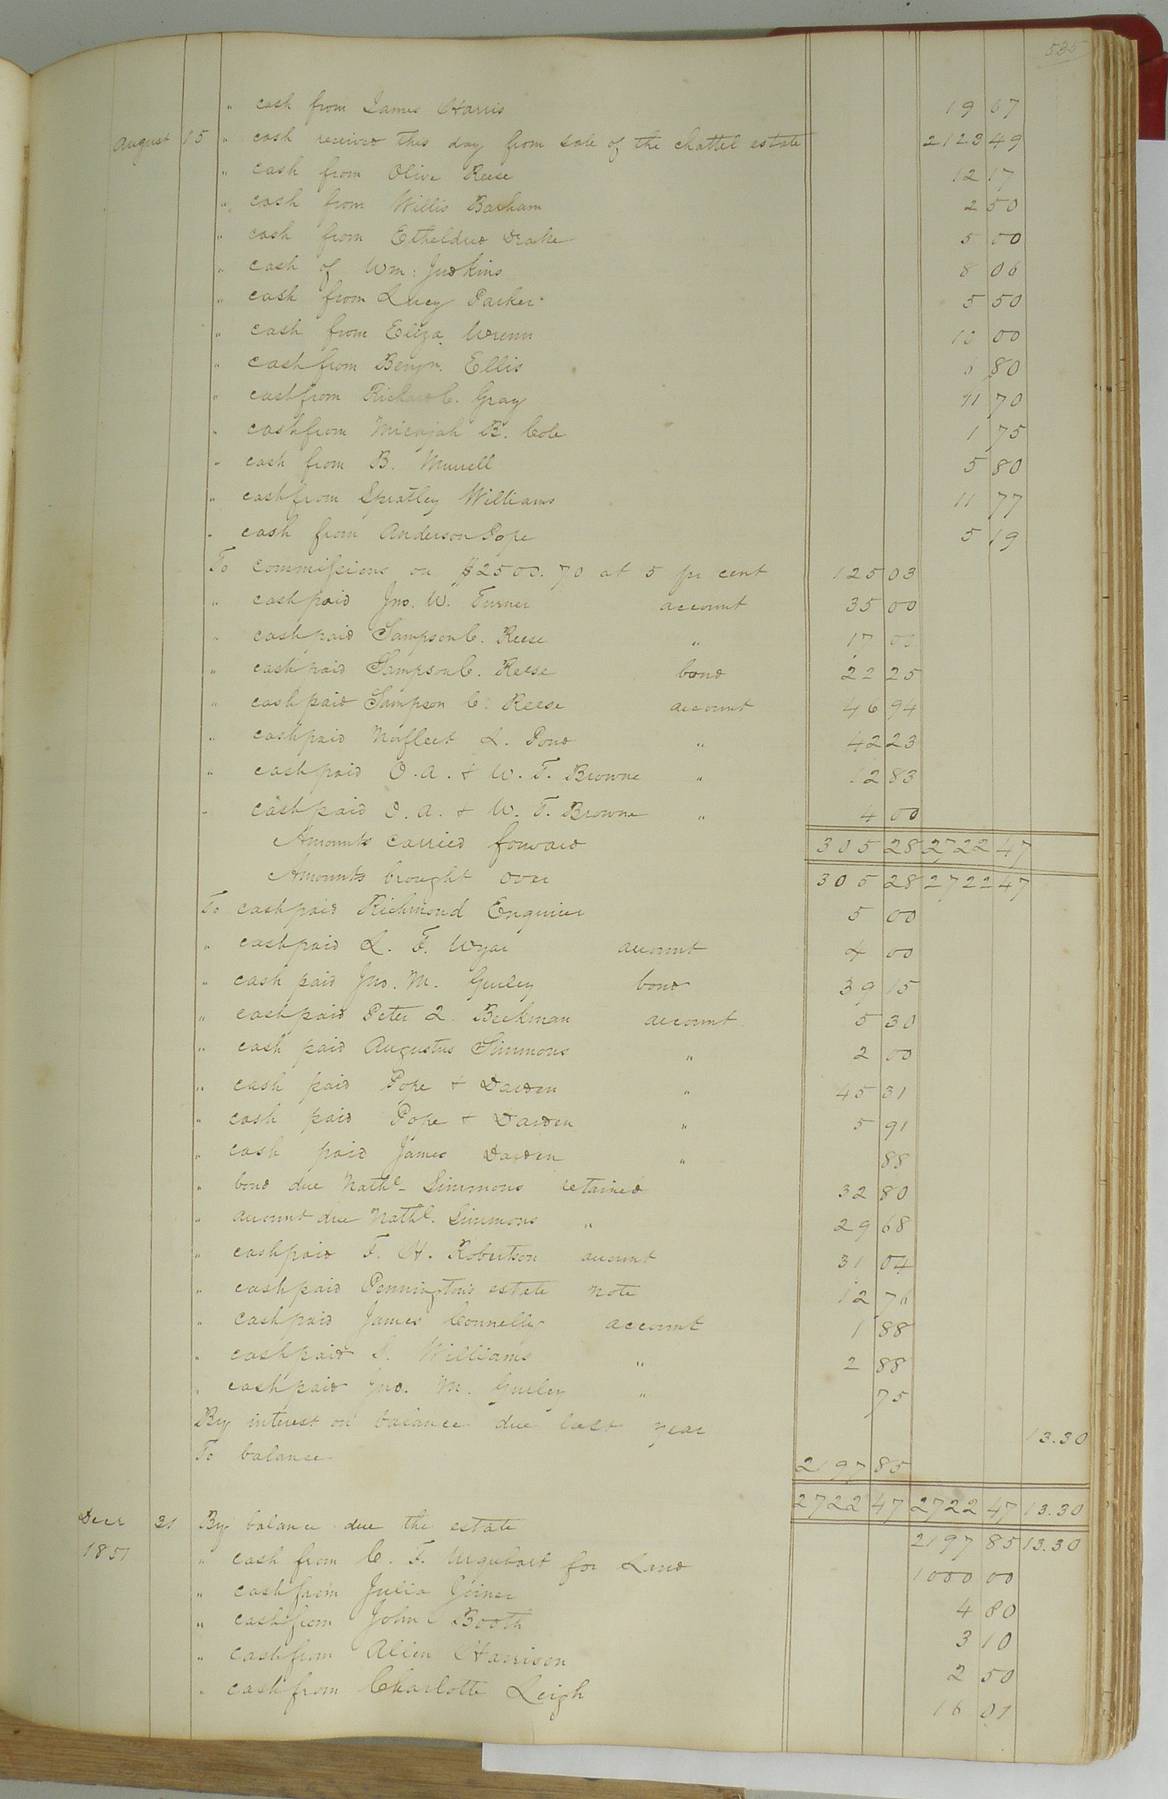 535
" cash from James Harris 19 67
August 15 " cash received this day from sale of the chattel estate 2123 49
" cash from Olive Reese 12 17
" cash from Willis Barham 2 50
" cash from Etheldred Drake 5 00
" cash of Wm: Judkins 8 06
" cash from Lucy Parker 5 50
" cash from Eliza. Wrenn 00
" cash from Benjn. Ellis 80
" cash from Richard C. Gray 70
" cash from Micajah B. Cole 1 75
" cash from B. Murrell 5 80
" cash from Spratley Williams 11 77
" cash from Anderson Pope 5 19
To commissions on $2500.70 at 5 pr cent 125 03
" cash paid Jno. W. Turner account 35 00
" cash paid Sampson C. Reese " 17 00
" cash paid Sampson C. Reese bond 22 25
" cash paid Sampson C. Reese account 46 94
" cash paid Norfleet L. Pond " 42 23
" cash paid O. A. & W. T. Browne " 12 83
" cash paid O. A. & W. T. Browne " 4 00
Amounts carried forward 305 28 2722 47
Amounts brought over 305 28 2722 47
To cash paid Richmond Enquirer 5 00
" cash paid L. F. account 4 00
" cash paid Jno. M. Gurley bond 39 15
" cash paid Peter Beekman account 5 30
" cash paid Augustus Simmons " 2 00
" cash paid Pope & Darden " 45 31
" cash paid Pope & Darden " 5 91
" cash paid James Darden " 88
" bond due Nathl. Simmons retained 32 80
" account due Nathl. Simmons " 29 68
" cash paid F. H. Robertson account 31 04
" cash paid Pennington's estate note 12
" cash paid James Connelly account 1 88
" cash paid Williams " 2 88
" cash paid Jno. M. Gurley " 75
By interest on balance due last year 13.30
To balance 2197 85
2722 47 2722 47 13.30
Decr 31 By balance due the estate 2197 85 13.30
1851 " cash from C. F. Urquhart for Land 1000 00
" cash from Julia Joiner 4 80
" cash from John Booth 3 10
" cash from Allen Harrison 2 50
" cash from Charlotte Leigh 16 01